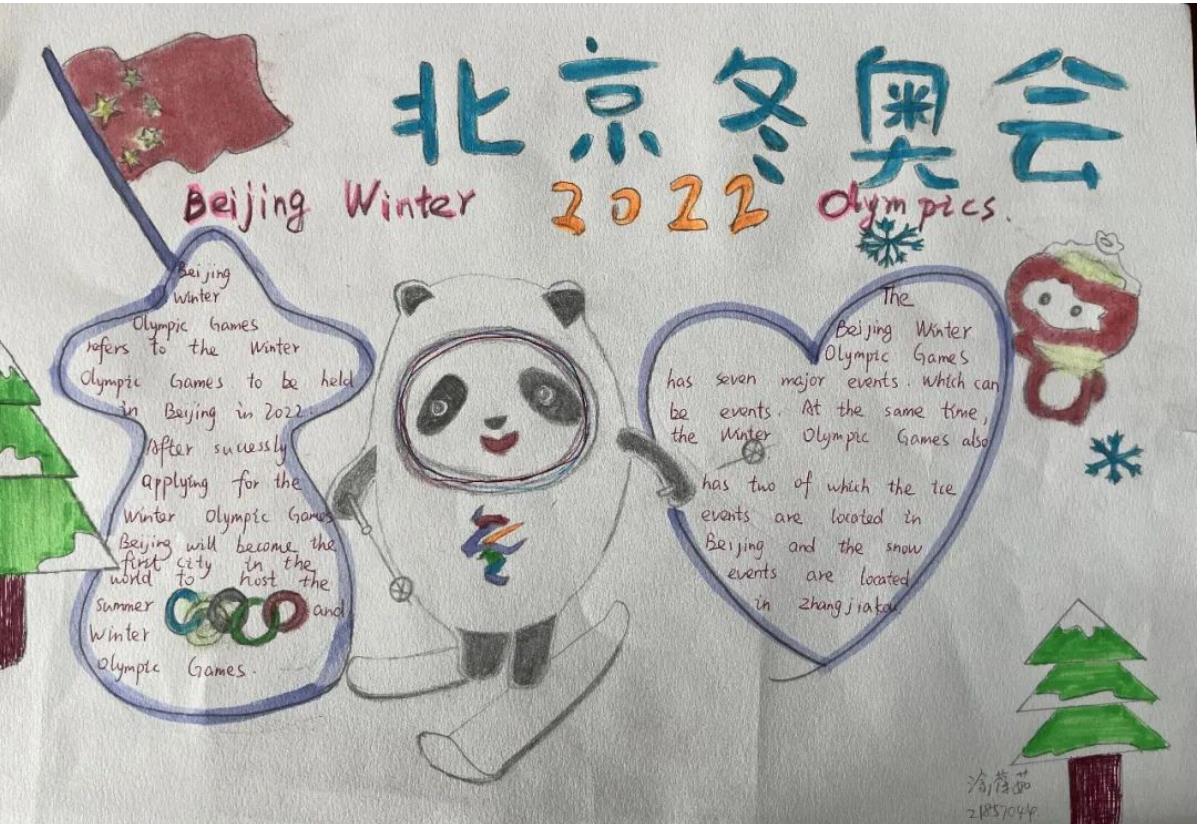 北京冬奥会
Beijing Winter 2022 Olympics.
Beijing
Winter
Olympic Games
refers to the Winter
Olympic Games to be held
in Beijing in 2022.
After successly
applying for the
Winter Olympic Games
Beijing will become the
first city in the
world to host the
Summer and
Winter
Olympic Games.
The
Beijing Winter
Olympic Games
has seven major events. Which can
be events. At the same time,
the Winter Olympic Games also
has two of which the ice
events are located in
Beijing and the snow
events are located
in Zhangjiakou.
2185704